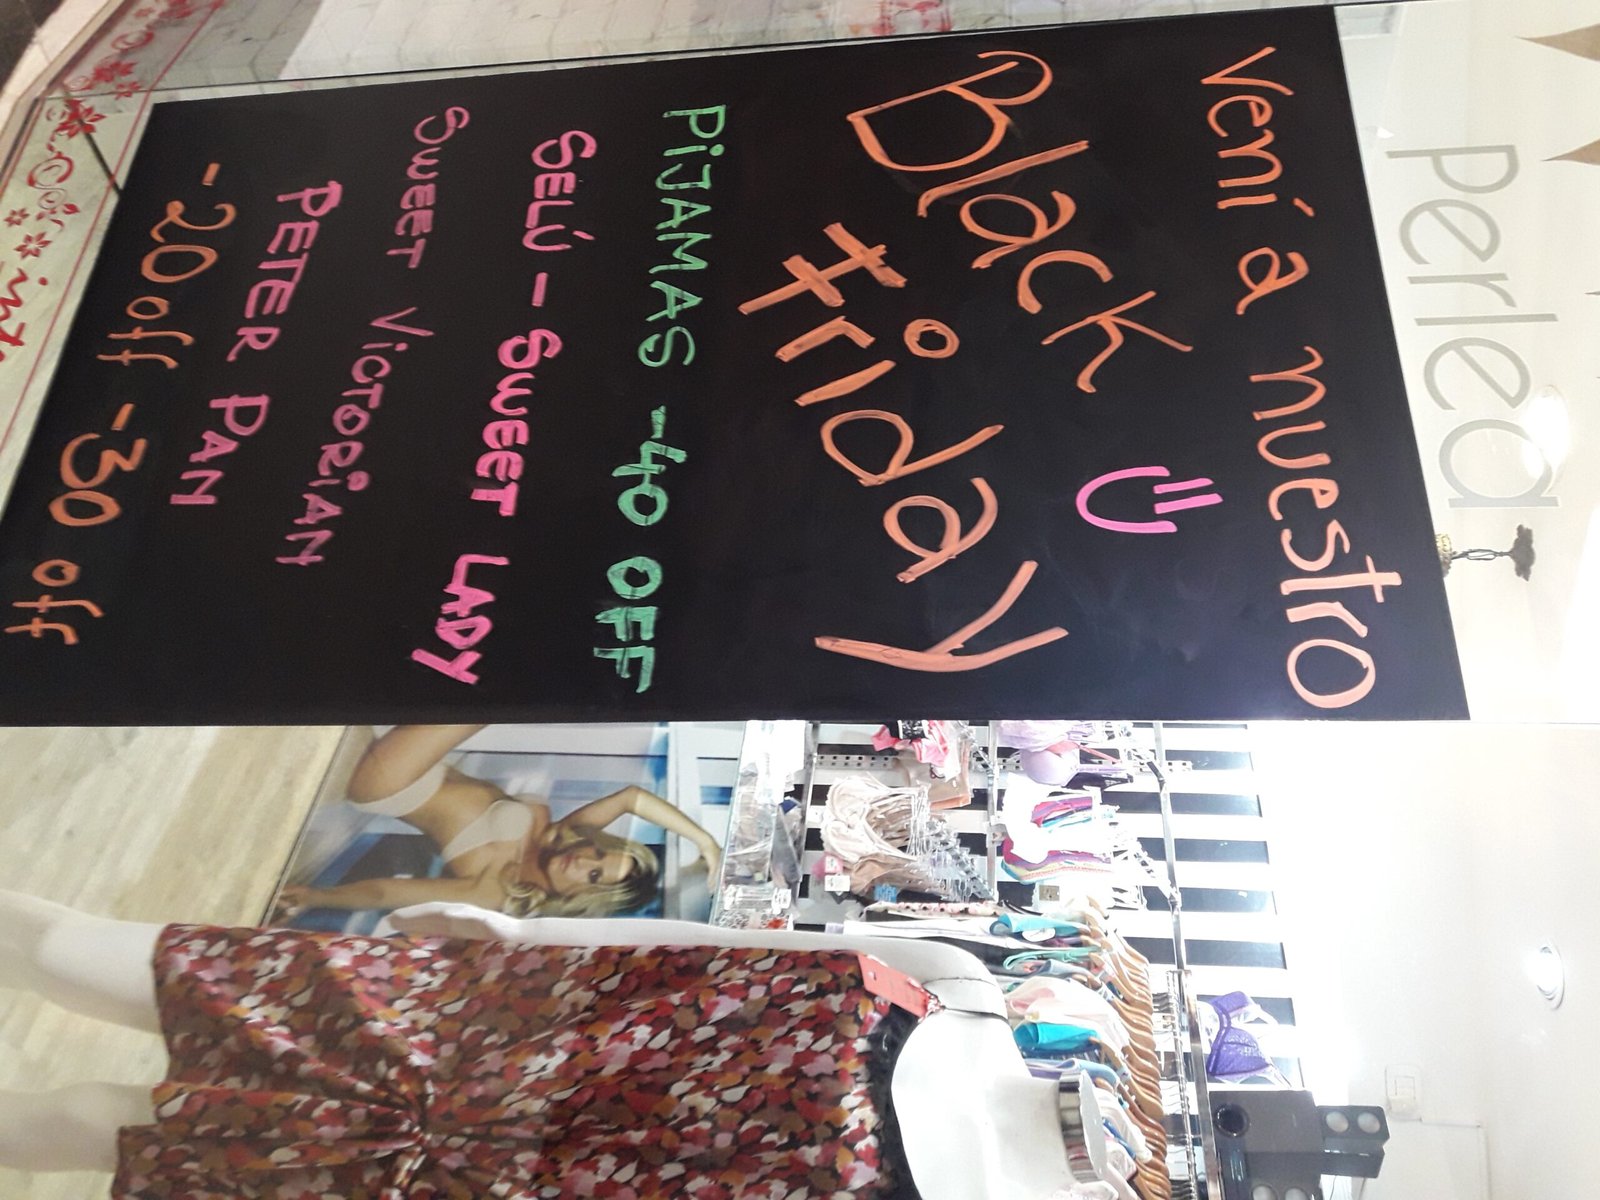 perlea
Vení a nuestro
Black
Friday
PiJAMAS -40 OFF
SELÚ - SWEET LADY
SWEET VicTORiAN
PETER PAN
-20 off -30 off